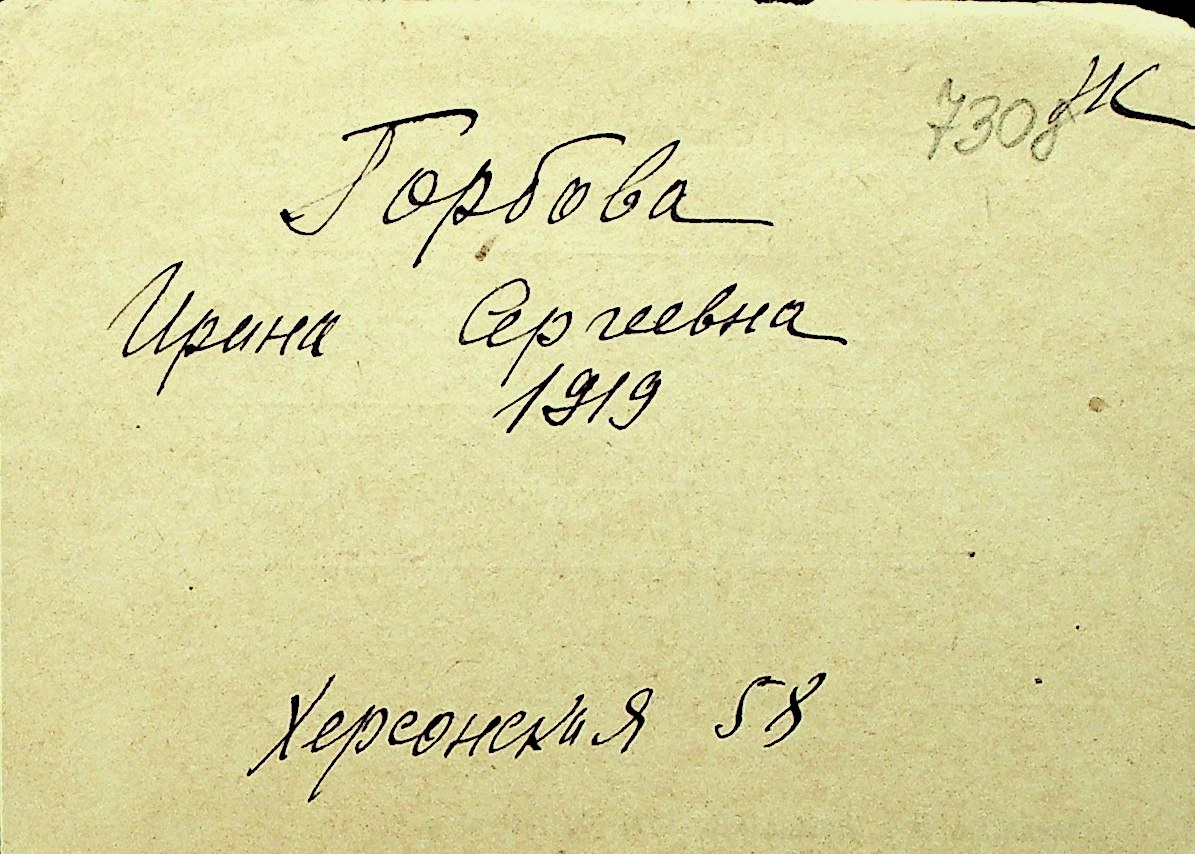 НК
7308
Горбова
Ирина Сергеевна
1919
Херсонская 58